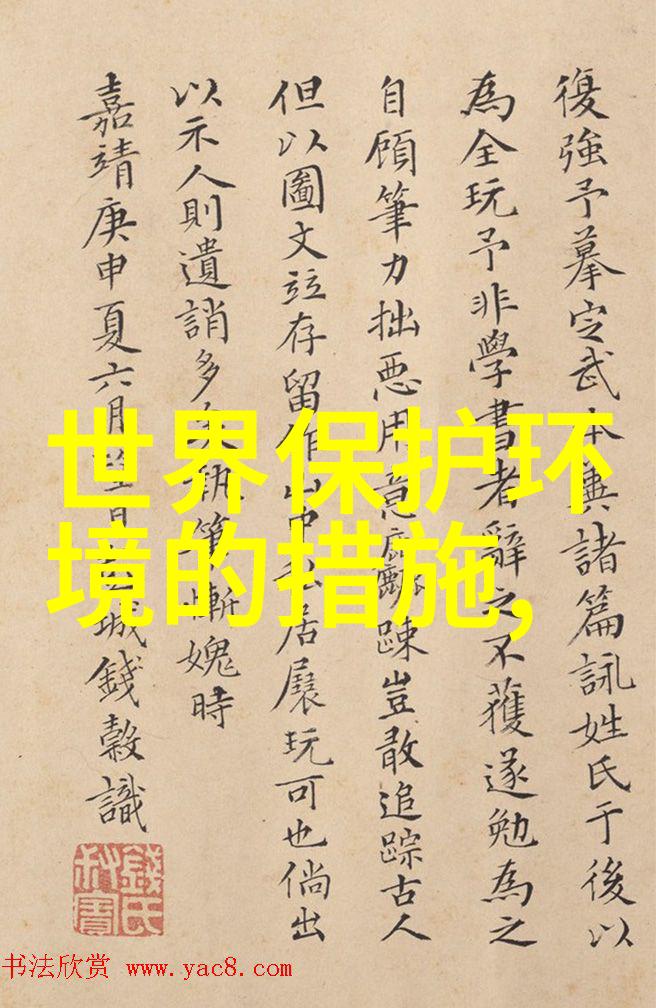 復強予摹定武本兼諸篇詠姓氏于後以
為全玩予非學書者辭之不獲遂勉為之
自顧筆力拙惡用意麤踈豈敢追踪古人
但以圖文竝存留作山中私居展玩可也倘出
以示人則遺誚多矣執筆慚媿時
嘉靖庚申夏六月 城錢穀識
錢氏
世界保护环
境的措施,
书法欣赏 www.yac8.com